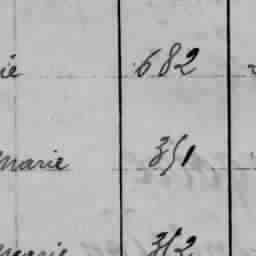 ié 682
Marie 351
Marie 352